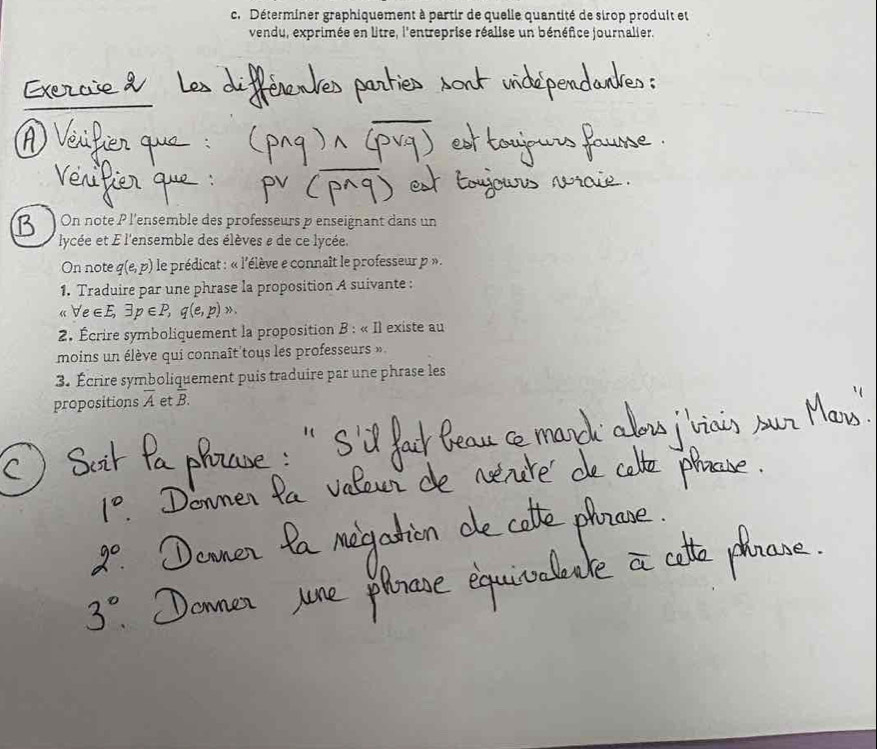 c. Déterminer graphiquement à partir de quelle quantité de sirop produit et
vendu, exprimée en litre, l'entreprise réalise un bénéfice journalier.
Exercice 2 Les différentes parties sont indépendantes :
A) Vérifier que : (p∧q) ∧ (\overline{p∨q}) est toujours fausse.
Vérifier que : p∨ (\overline{p∧q}) est toujours vraie.
B) On note P l'ensemble des professeurs p enseignant dans un
lycée et E l'ensemble des élèves e de ce lycée.
On note q(e, p) le prédicat : « l'élève e connaît le professeur p ».
1. Traduire par une phrase la proposition A suivante :
« ∀e ∈ E, ∃p ∈ P, q(e, p) ».
2. Écrire symboliquement la proposition B : « Il existe au
moins un élève qui connaît tous les professeurs ».
3. Écrire symboliquement puis traduire par une phrase les
propositions \overline{A} et \overline{B}.
C) Soit la phrase : " S'il fait beau ce mardi alors j'irais sur Mars".
1°. Donner la valeur de vérité de cette phrase.
2°. Donner la négation de cette phrase.
3°. Donner une phrase équivalente à cette phrase.